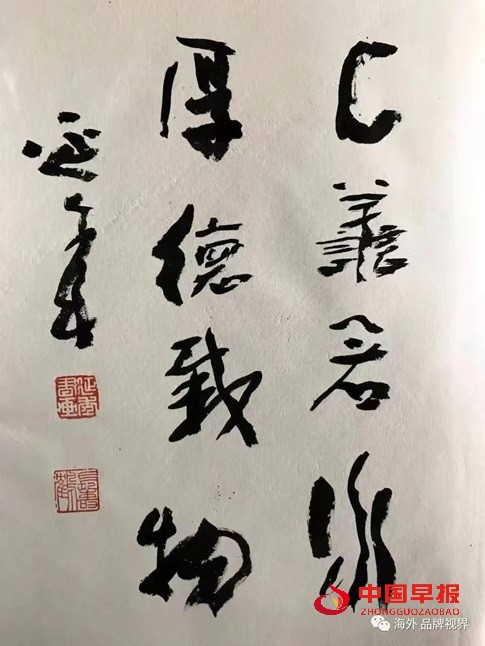 上善若水
厚德载物
延年
中国早报
ZHONGGUOZAOBAO
海外 品牌视界